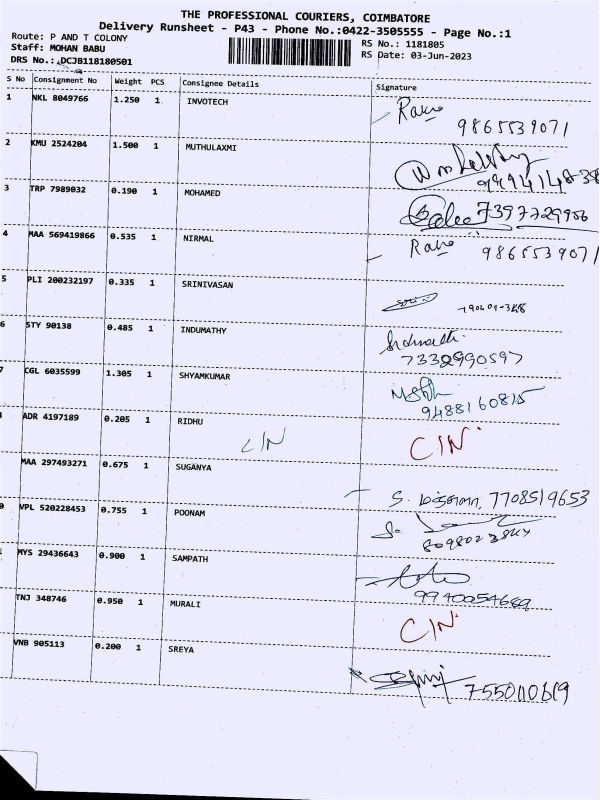 THE PROFESSIONAL COURIERS, COIMBATORE
Delivery Runsheet - P43 - Phone No.:0422-3505555 - Page No.:1
Route: P AND T COLONY RS No.: 1181805
Staff: MOHAN BABU RS Date: 03-Jun-2023
DRS No.: DCJB118180501
S No Consignment No Weight PCS Consignee Details Signature
1 NKL 8049766 1.250 1 INVOTECH
9865539071
2 KMU 2524204 1.500 1 MUTHULAXMI
3 TRP 7989032 0.190 1 MOHAMED
7397729906
4 MAA 569419866 0.535 1 NIRMAL
9865539071
5 PLI 200232197 0.335 1 SRINIVASAN
6 STY 90138 0.485 1 INDUMATHY
7332990597
7 CGL 6035599 1.305 1 SHYAMKUMAR
ADR 4197189 0.205 1 RIDHU
C/N C/N
MAA 297493271 0.675 1 SUGANYA
S. 7708519653
VPL 520228453 0.755 1 POONAM
MYS 29436643 0.900 1 SAMPATH
9940054669
TNJ 348746 0.950 1 MURALI
C/N
VNB 905113 0.200 1 SREYA
7550110619